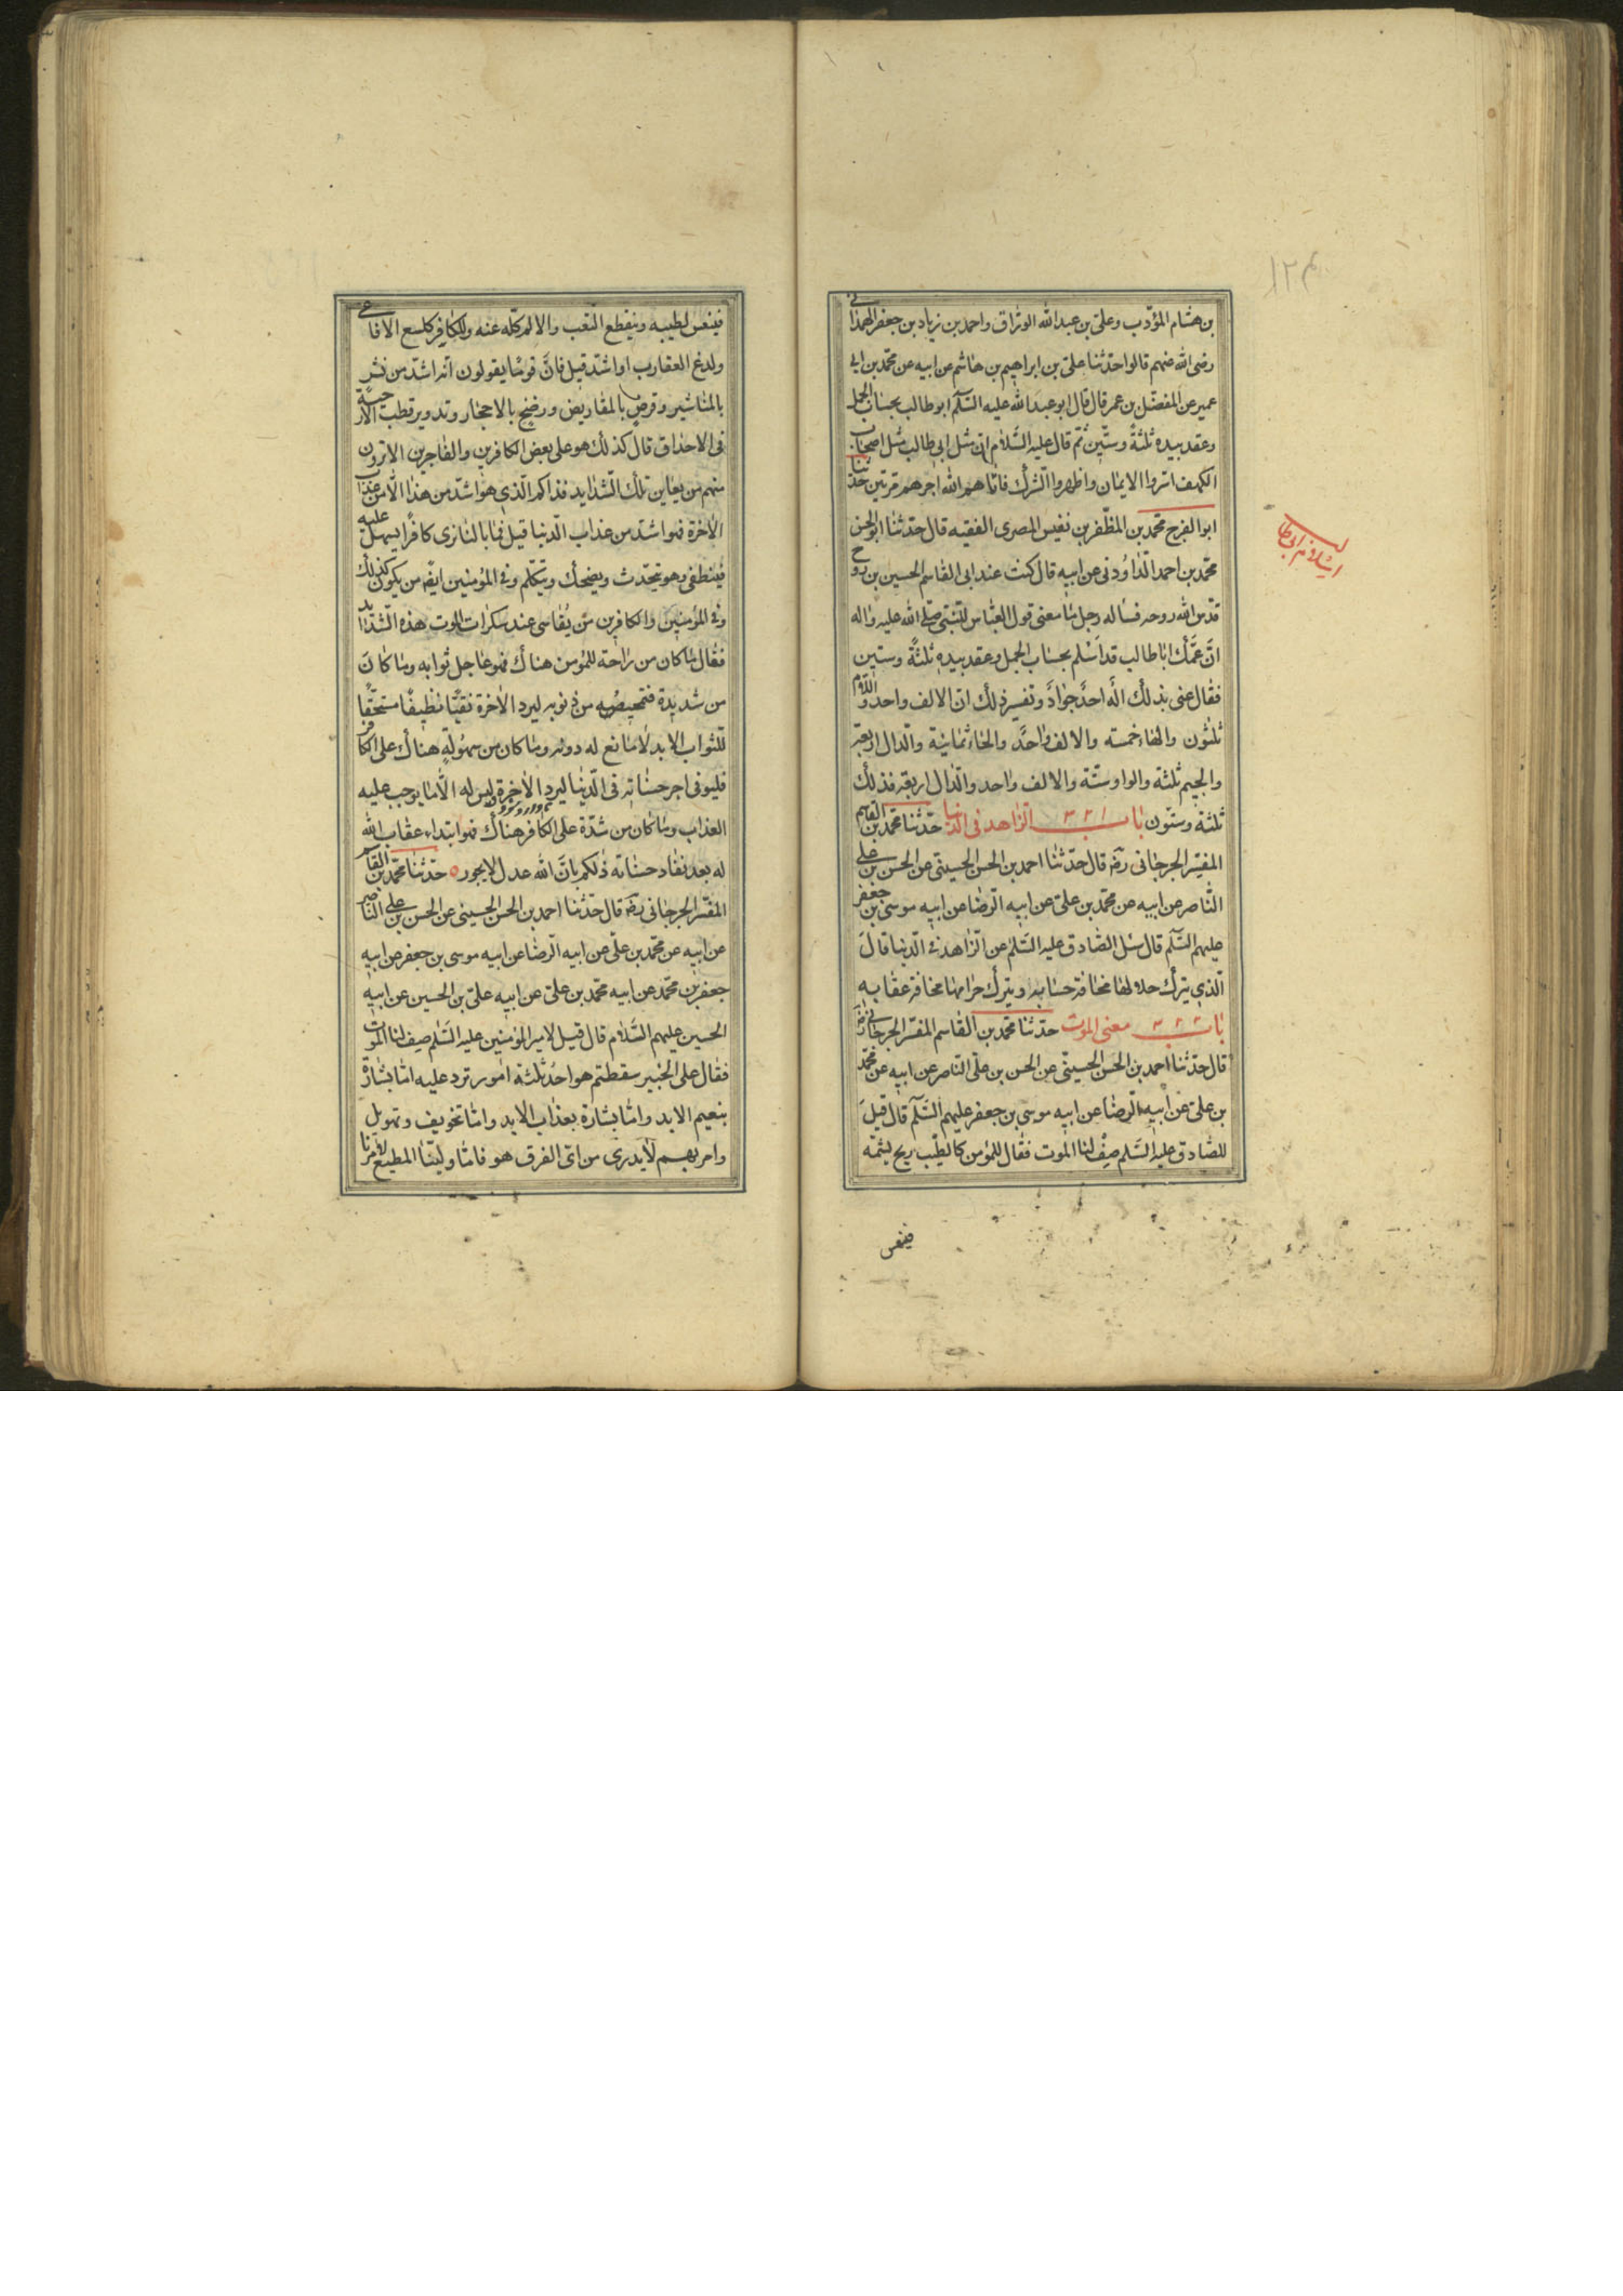 بن هشام المؤدب وعلي بن عبد الله الوراق واحمد بن زياد بن جعفر الهمداني
رضى الله عنهم قالوا حدثنا على بن ابراهيم بن هاشم عن ابيه عن محمد بن ابي
عمير عن المفضل بن عمر قال قال ابو عبد الله عليه السلم ابو طالب بحساب الجمل
وعقد بيده ثلثة وستين ثم قال عليه السلام ان مثل ابى طالب مثل اصحاب
الكهف اسروا الايمان واظهروا الشرك فاتاهم الله اجرهم مرتين حدثنا
ابو الفرج محمد بن المظفر بن نفيس المصرى الفقيه قال حدثنا ابو الحسن
محمد بن احمد الداودى عن ابيه قال كنت عند ابى القاسم الحسين بن روح
قدس الله روحه فساله رجل ما معنى قول العباس للنبى صلى الله عليه واله
ان عمك ابا طالب قد اسلم بحساب الجمل وعقد بيده ثلثة وستين
فقال عنى بذلك اله احد جواد وتفسير ذلك ان الالف واحد واللام
ثلثون والهاء خمسته والالف واحد والحاء ثمانية والدال اربعة
والجيم ثلثة والواو ستة والالف واحد والدال اربعة فذلك
ثلثة وستون باب ٣٢١ الزاهد فى الدنيا حدثنا محمد بن القاسم
المفسر الجرجانى رضه قال حدثنا احمد بن الحسن الحسينى عن الحسن بن على
الناصر عن ابيه عن محمد بن على عن ابيه الرضا عن ابيه موسى بن جعفر
عليهم السلم قال سئل الصادق عليه السلم عن الزاهد في الدنيا قال
الذي يترك حلالها مخافة حسابه ويترك حرامها مخافة عقابه
باب ٣٢٢ معنى الموت حدثنا محمد بن القاسم المفسر الجرجانى رضه
قال حدثنا احمد بن الحسن الحسينى عن الحسن بن على الناصر عن ابيه عن محمد
بن على عن ابيه الرضا عن ابيه موسى بن جعفر عليهم السلم قال قيل
للصادق عليه السلم صف لنا الموت فقال للمؤمن كاطيب ريح يشمه
فينعس
اسلام ابى طالب
فينعس لطيبه وينقطع التعب والالم كله عنه وللكافر كلسع الافاعي
ولدغ العقارب او اشد قيل فان قوما يقولون انه اشد من نشر
بالمناشير وقرض بالمقاريض ورضخ بالاحجار وتدوير قطب الارحية
فى الاحداق قال كذلك هو على بعض الكافرين والفاجرين الا ترون
منهم من يعاين تلك الشدايد فذاكم الذي هو اشد من هذا الا من عذاب
الاخرة فهو اشد من عذاب الدنيا قيل فما بالنا نرى كافرا يسهل عليه
فينطفى وهو يتحدث ويضحك ويتكلم وفي المؤمنين ايضم من يكون كذلك
وفي المؤمنين والكافرين من يقاسى عند سكرات الموت هذه الشدايد
فقال ما كان من راحة للمؤمن هناك فهو عاجل ثوابه وما كان
من شديدة فتمحيصه من ذنوبه ليرد الاخرة نقيا نظيفا مستحقا
للثواب الابد لا مانع له دونه وما كان من سهولة هناك على الكافر
فليوفى اجر حسناته فى الدنيا ليرد الاخرة وليس له الا ما يوجب عليه
العذاب وما كان من شدة على الكافر هناك فهو ابتداء عقاب الله
له بعد نفاد حسناته ذلكم بان الله عدل لا يجور حدثنا محمد بن القاسم
المفسر الجرجانى رضه قال حدثنا احمد بن الحسن الحسينى عن الحسن بن على الناصر
عن ابيه عن محمد بن على عن ابيه الرضا عن ابيه موسى بن جعفر عن ابيه
جعفر بن محمد عن ابيه محمد بن على عن ابيه على بن الحسين عن ابيه
الحسين عليهم السلام قال قيل لامير المؤمنين عليه السلم صف لنا الموت
فقال على الخبير سقطتم هو احد ثلثة امور ترد عليه اما بشارة
بنعيم الابد واما بشارة بعذاب الابد واما تخويف وتهويل
وامر بهم لا يدرى من اى الفرق هو فاما ولينا المطيع لامرنا